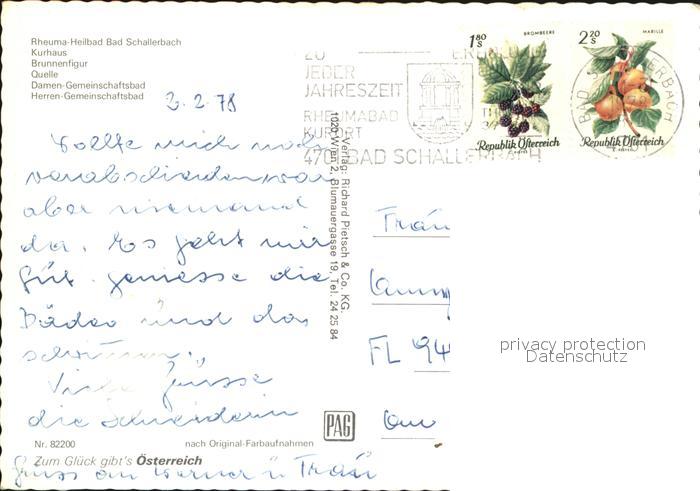 Rheuma-Heilbad Bad Schallerbach
Kurhaus
Brunnenfigur
Quelle
Damen-Gemeinschaftsbad
Herren-Gemeinschaftsbad
2.2.78
Wollte mich noch
verabschieden, war
aber niemand
da. Es geht mir
gut. geniesse die
Bäder und das
schwimmen.
Viele Grüsse
die Schneiderin
Nr. 82200
nach Original-Farbaufnahmen
Zum Glück gibt's Österreich
Gruss an Werner u. Frau
Verlag: Richard Pietsch & Co. KG.
1020 Wien 2, Blumauergasse 19, Tel. 24 25 84
PAG
ZU
JEDER
JAHRESZEIT
RHEUMABAD
KURORT
4701 BAD SCHALLERBACH
1 80
S
BROMBEERE
Republik Österreich
2 20
S
MARILLE
Republik Österreich
FL 94
privacy protection
Datenschutz